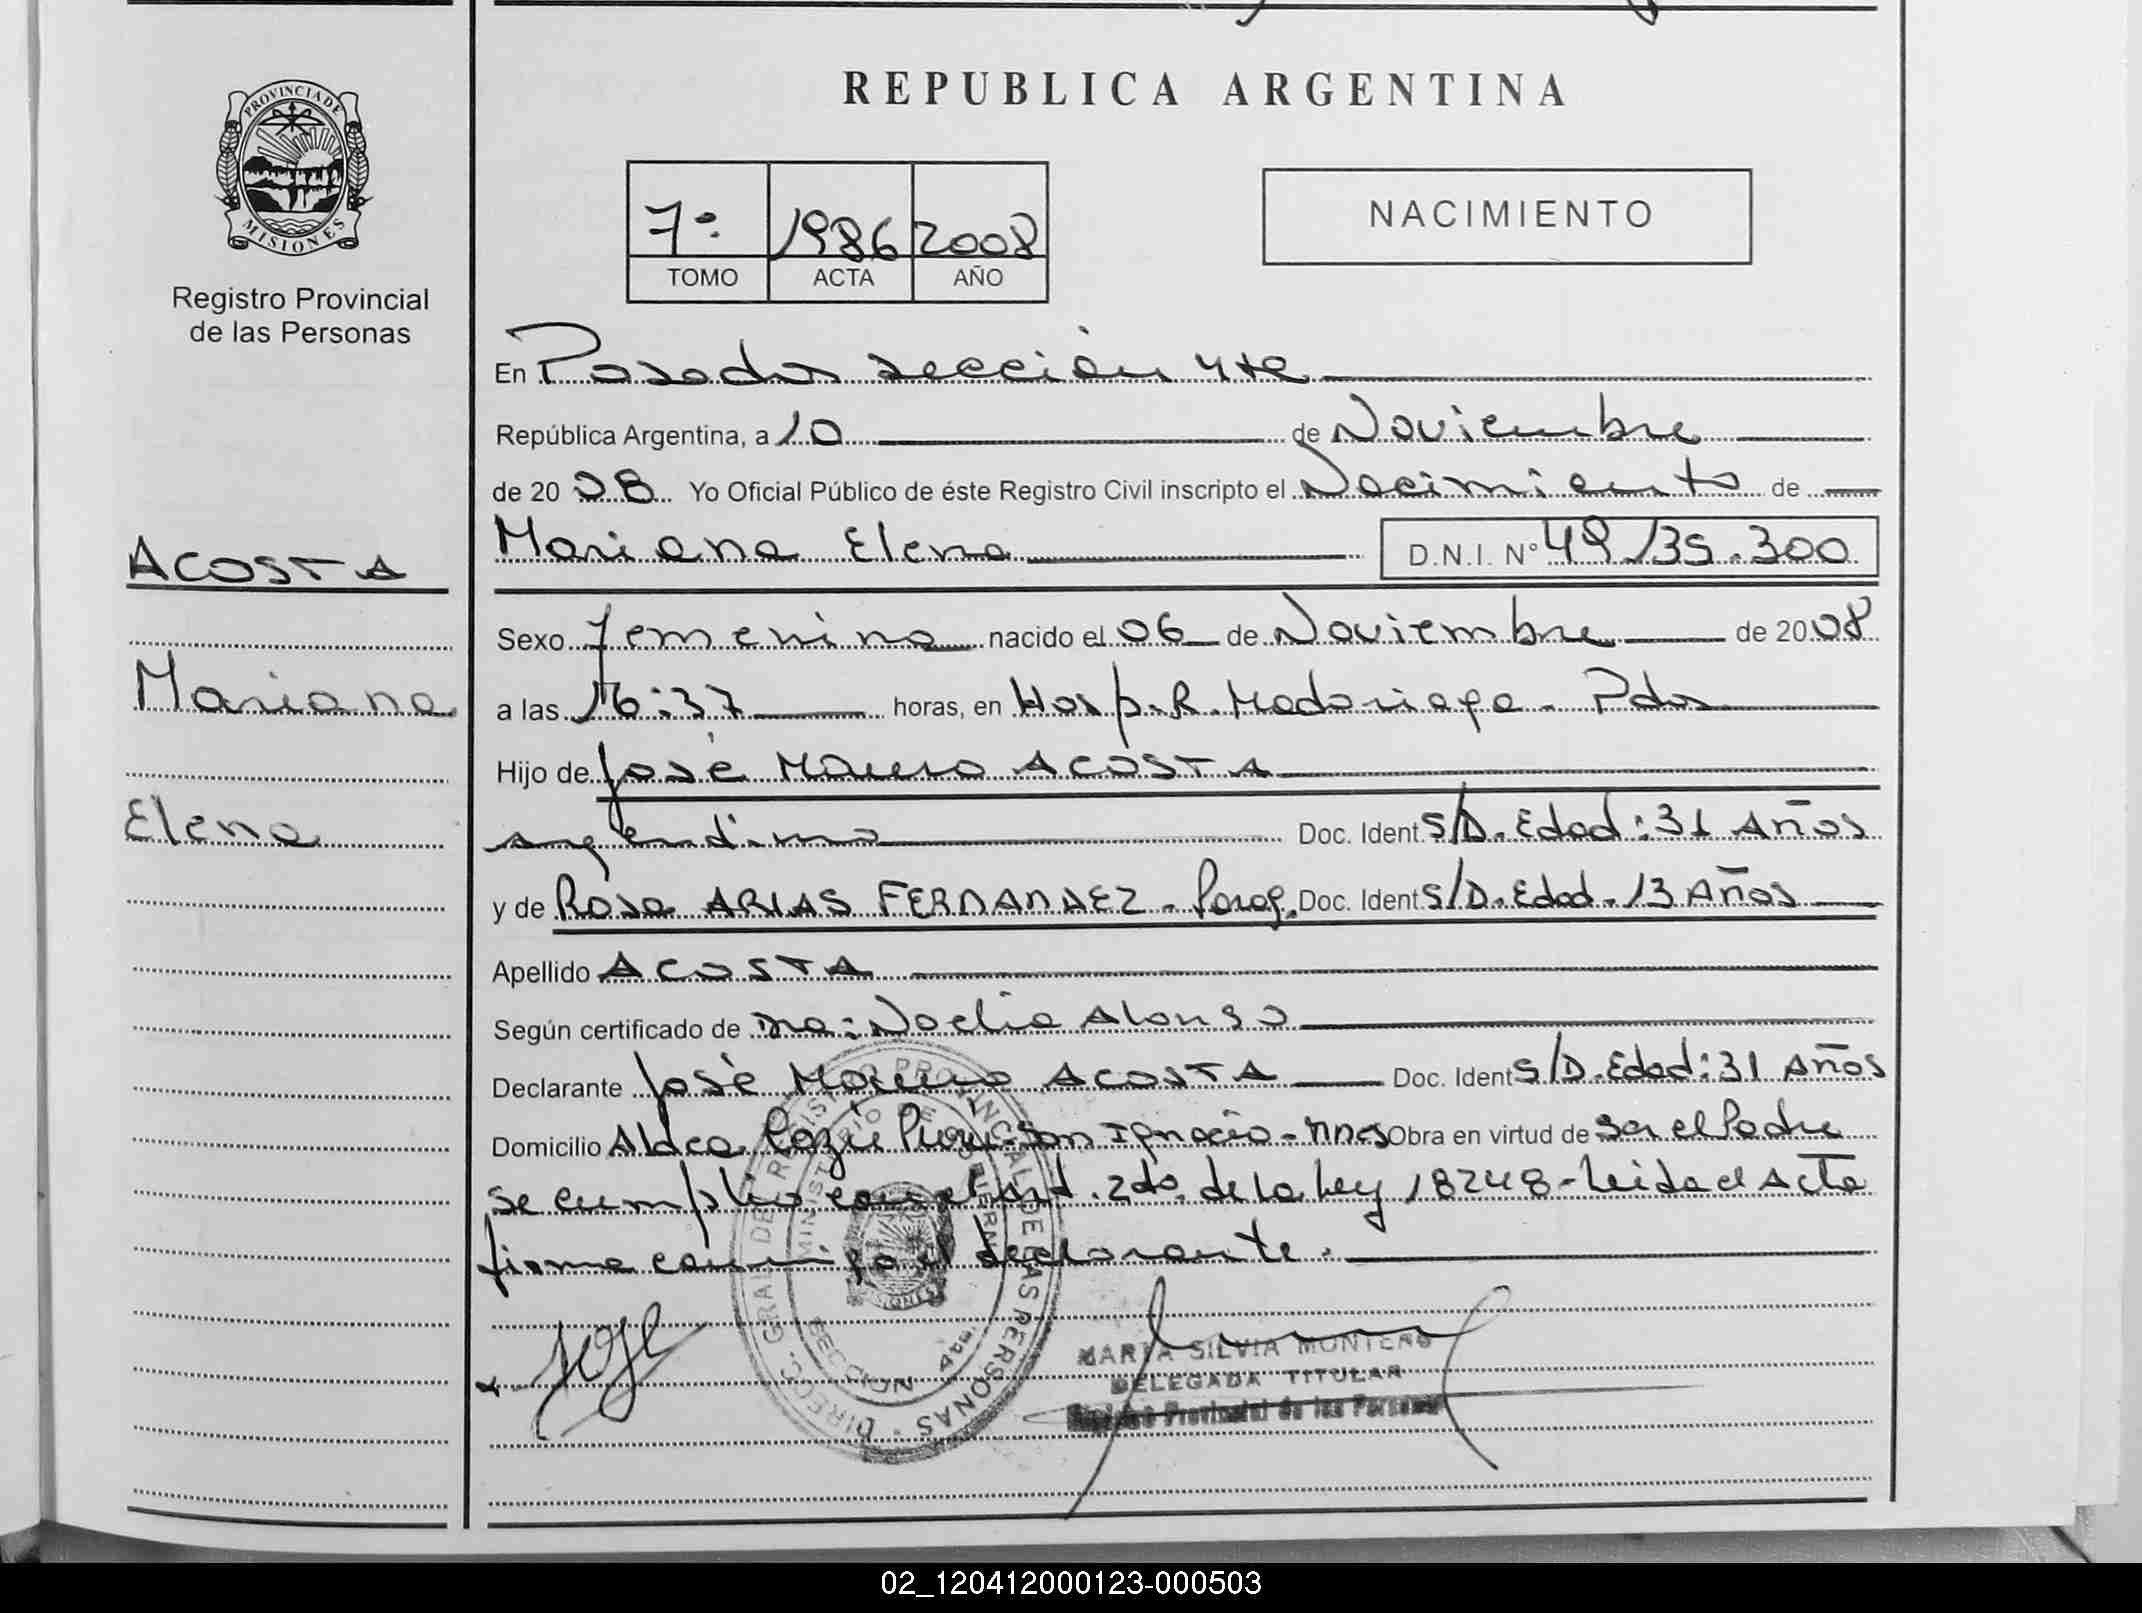 REPUBLICA ARGENTINA
PROVINCIA DE
MISIONES
Registro Provincial
de las Personas
7º 1986 2008
TOMO ACTA AÑO
NACIMIENTO
En Posadas sección 4ta
República Argentina, a 10 de Noviembre
de 20 08 Yo Oficial Público de éste Registro Civil inscripto el Nacimiento de
Mariana Elena D.N.I. Nº 49.135.300
ACOSTA
Mariana
Elena
Sexo femenino nacido el 06 de Noviembre de 2008
a las 16:37 horas, en Hosp. R. Madariaga - Pdas
Hijo de José Mauro ACOSTA
argentino Doc. Ident. S/D. Edad: 31 Años
y de Rosa ARIAS FERNANDEZ - Parag. Doc. Ident S/D. Edad. 13 Años
Apellido ACOSTA
Según certificado de Dra: Noelia Alonso
Declarante José Mauro ACOSTA Doc. Ident S/D. Edad: 31 Años
Domicilio Aldea San Ignacio - Mnes Obra en virtud de ser el Padre
se cumplio con el Art. 2do. de la Ley 18248 - Leida el Acta
firma conmigo el declarante.
DIRECC. GRAL. DE REGISTRO PROVINCIAL DE LAS PERSONAS
MINISTERIO DE GOBIERNO
MISIONES
MARTA SILVIA MONTERO
DELEGADA TITULAR
Registro Provincial de las Personas
02_120412000123-000503